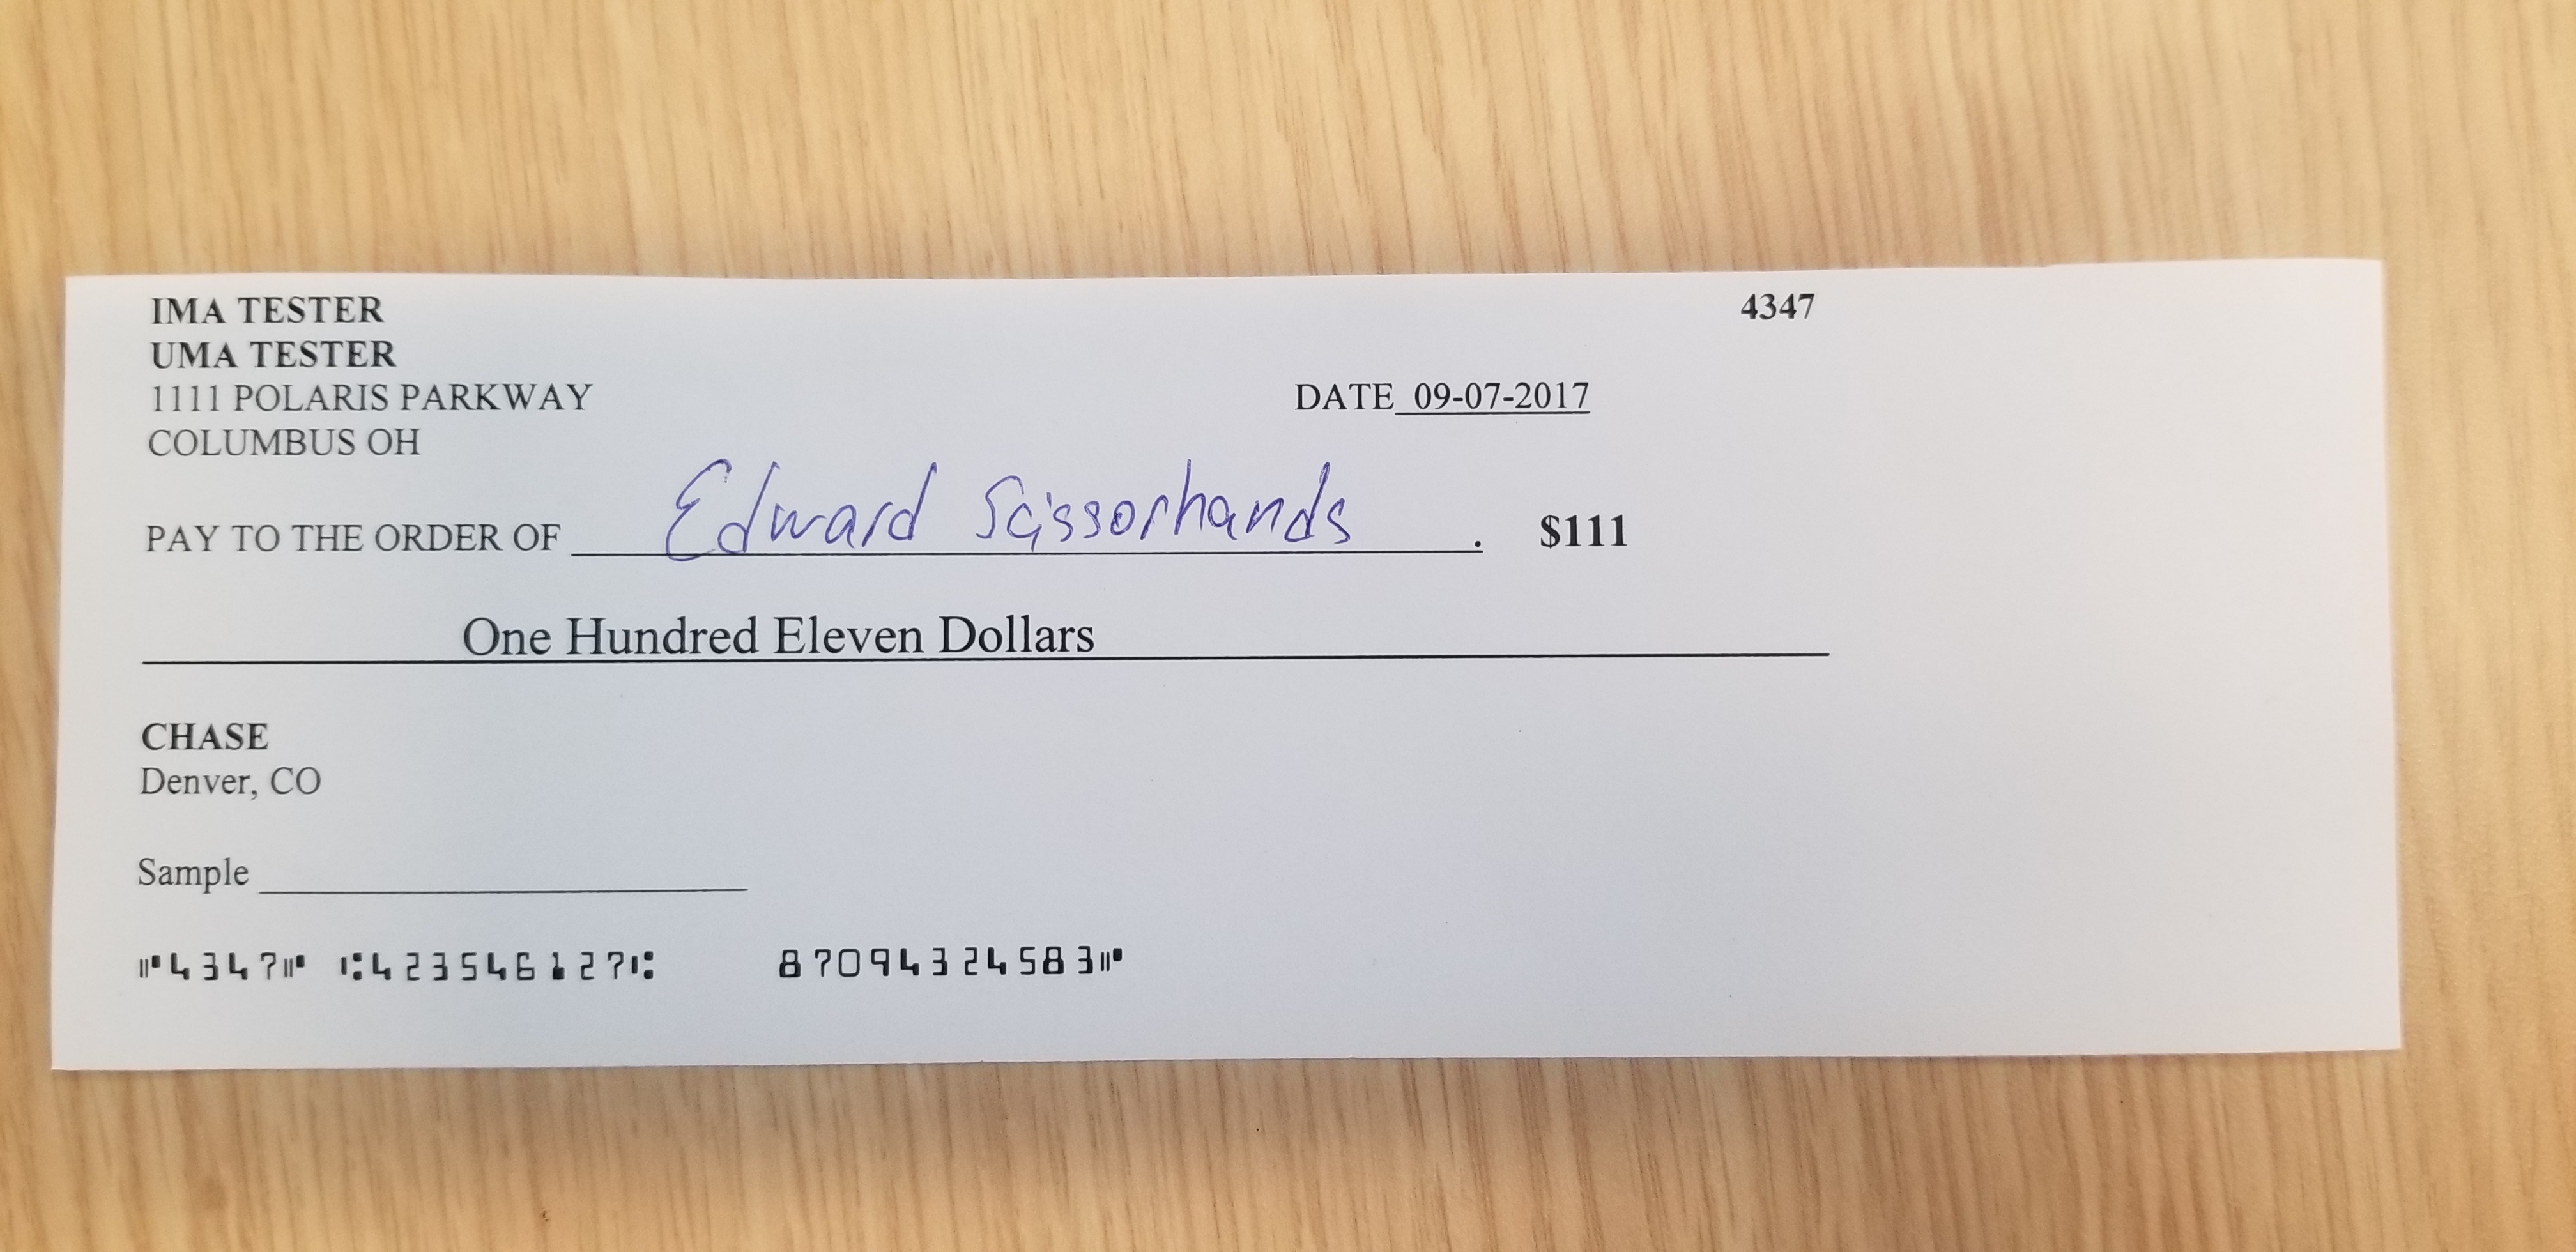 IMA TESTER 4347
UMA TESTER
1111 POLARIS PARKWAY DATE 09-07-2017
COLUMBUS OH
PAY TO THE ORDER OF Edward Scissorhands . $111
One Hundred Eleven Dollars
CHASE
Denver, CO
Sample
⑈4347⑈ ⑆423546127⑆ 87094324583⑈